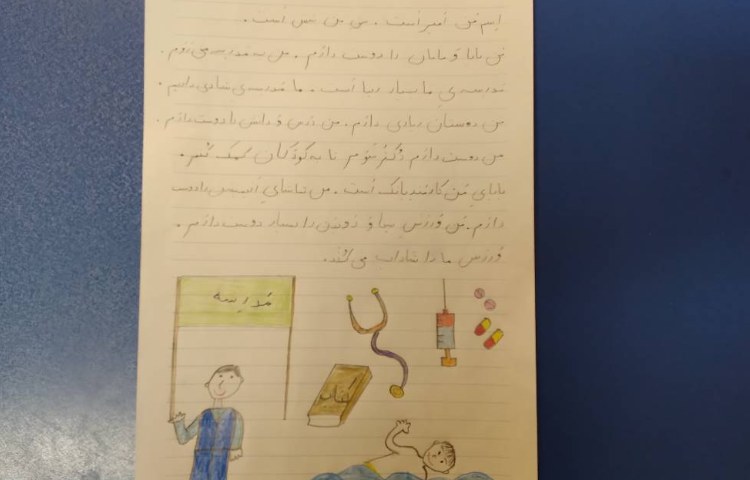 اسم من امیر است. سن من شش است.
من بابا و مامان را دوست دارم. من به مدرسه می‌روم.
مدرسه‌ی ما بسیار زیبا است. ما مدرسه‌ی شادی داریم.
من دوستان زیادی دارم. من درس و دانش را دوست دارم.
من دوست دارم دکتر شوم تا به کودکان کمک کنم.
بابای من کارمند بانک است. من نقاشی را دوست
دارم. من ورزش شنا و دویدن را بسیار دوست دارم.
ورزش ما را شاداب می‌کند.
مدرسه
کتاب